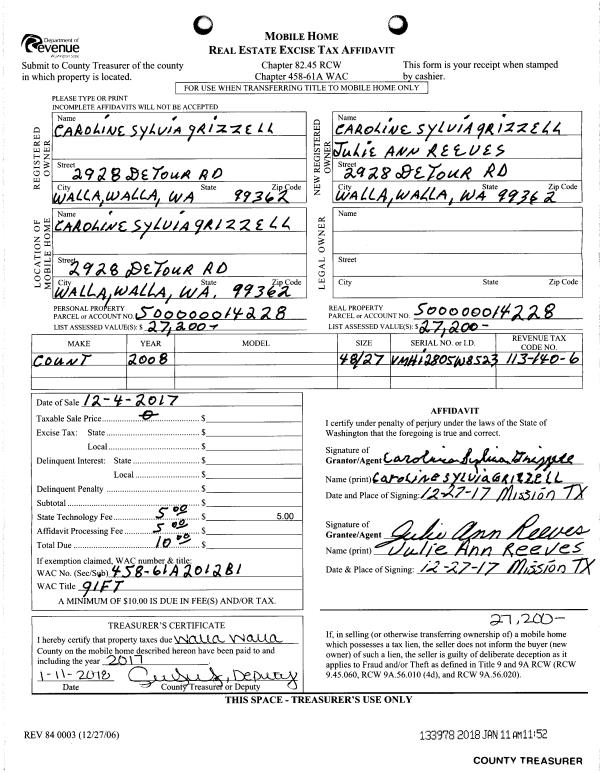 Department of
Revenue
Washington State
MOBILE HOME
REAL ESTATE EXCISE TAX AFFIDAVIT
Submit to County Treasurer of the county
in which property is located.
Chapter 82.45 RCW
Chapter 458-61A WAC
This form is your receipt when stamped
by cashier.
FOR USE WHEN TRANSFERRING TITLE TO MOBILE HOME ONLY
PLEASE TYPE OR PRINT
INCOMPLETE AFFIDAVITS WILL NOT BE ACCEPTED
REGISTERED OWNER
Name
CAROLINE SYLVIA GRIZZELL
Street
2928 DETOUR RD
City State Zip Code
WALLA, WALLA, WA 99362
NEW REGISTERED OWNER
Name
CAROLINE SYLVIA GRIZZELL
JULIE ANN REEVES
Street
2928 DETOUR RD
City State Zip Code
WALLA, WALLA, WA 99362
LOCATION OF MOBILE HOME
Name
CAROLINE SYLVIA GRIZZELL
Street
2928 DETOUR RD
City State Zip Code
WALLA, WALLA, WA. 99362
LEGAL OWNER
Name
Street
City State Zip Code
PERSONAL PROPERTY
PARCEL or ACCOUNT NO. 500000014228
LIST ASSESSED VALUE(S): $ 27,200-
REAL PROPERTY
PARCEL or ACCOUNT NO. 500000014228
LIST ASSESSED VALUE(S): $ 27,200-
MAKE YEAR MODEL SIZE SERIAL NO. or I.D. REVENUE TAX CODE NO.
COUNT 2008 48/27 VMHI2805W8523 113-140-6
Date of Sale 12-4-2017
Taxable Sale Price 0 $
Excise Tax: State $
Local $
Delinquent Interest: State $
Local $
Delinquent Penalty $
Subtotal $
State Technology Fee 5 00 $ 5.00
Affidavit Processing Fee 5 00 $
Total Due 10 00 $
If exemption claimed, WAC number & title:
WAC No. (Sec/Sub) 458-61A2012B1
WAC Title GIFT
A MINIMUM OF $10.00 IS DUE IN FEE(S) AND/OR TAX.
AFFIDAVIT
I certify under penalty of perjury under the laws of the State of
Washington that the foregoing is true and correct.
Signature of
Grantor/Agent Caroline Sylvia Grizzell
Name (print) CAROLINE SYLVIA GRIZZELL
Date and Place of Signing: 12-27-17 Mission TX
Signature of
Grantee/Agent Julie Ann Reeves
Name (print) Julie Ann Reeves
Date & Place of Signing: 12-27-17 Mission TX
TREASURER'S CERTIFICATE
I hereby certify that property taxes due Walla Walla
County on the mobile home described hereon have been paid to and
including the year 2017
1-11-2018 , Deputy
Date County Treasurer or Deputy
27,200-
If, in selling (or otherwise transferring ownership of) a mobile home
which possesses a tax lien, the seller does not inform the buyer (new
owner) of such a lien, the seller is guilty of deliberate deception as it
applies to Fraud and/or Theft as defined in Title 9 and 9A RCW (RCW
9.45.060, RCW 9A.56.010 (4d), and RCW 9A.56.020).
THIS SPACE - TREASURER'S USE ONLY
REV 84 0003 (12/27/06)
133978 2018 JAN 11 AM11:52
COUNTY TREASURER